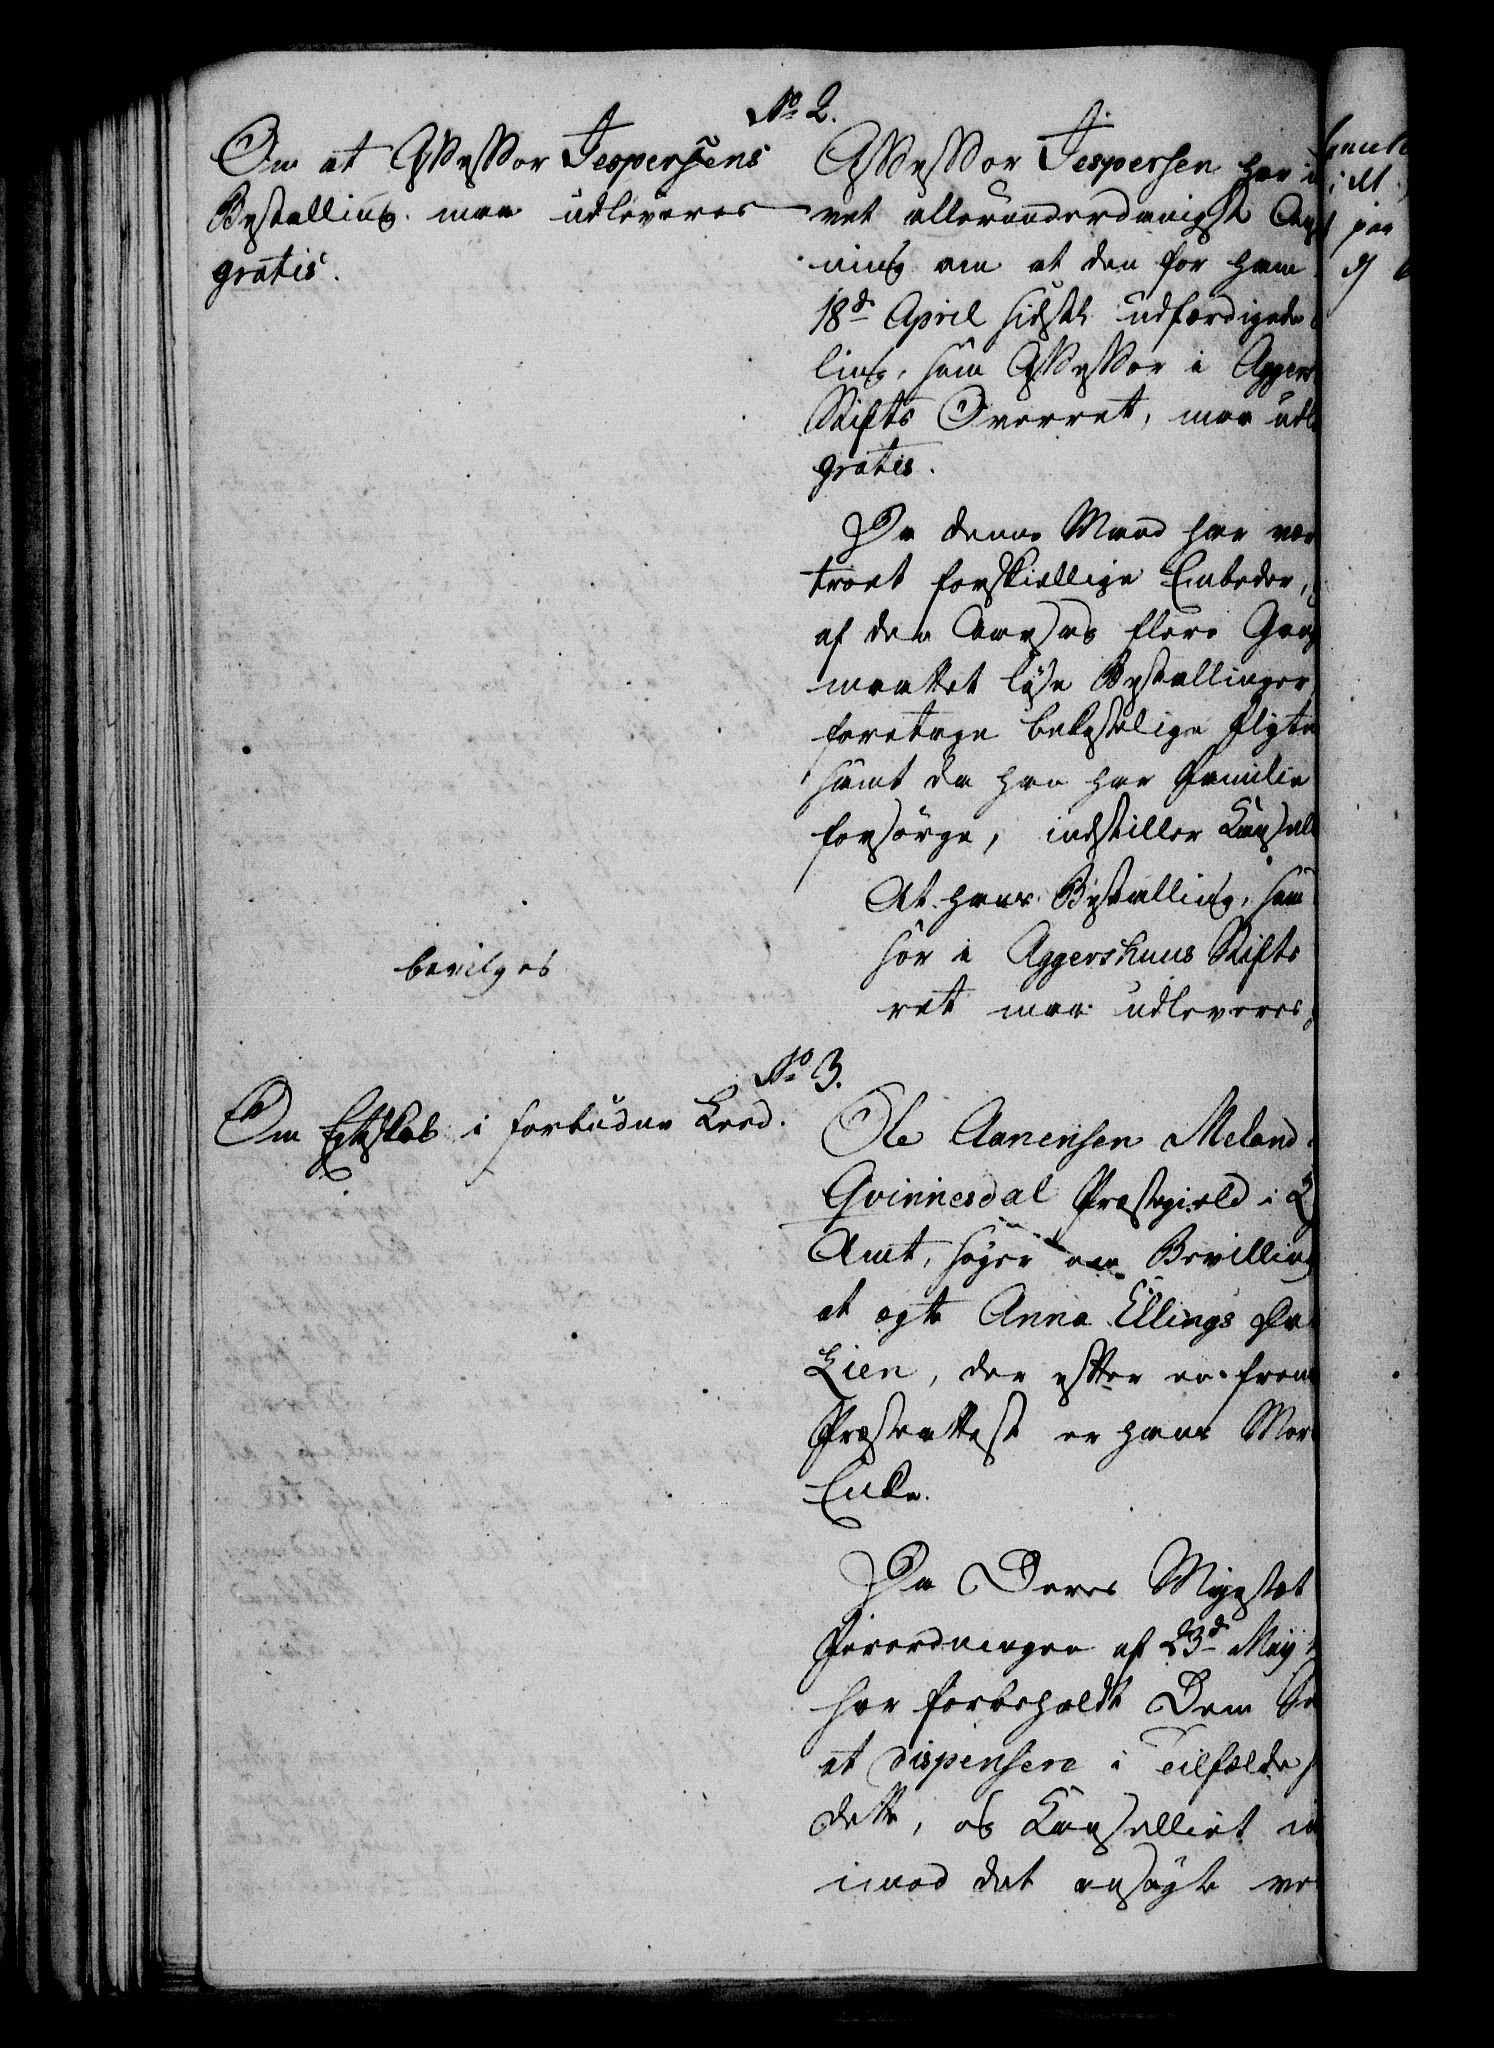 No 2.
Om at Assessor Jespersens
Bestalling maa udleveres
gratis.
Assessor Jespersen har
vet allerunderdanigst
ning om at den for ham
18de April sidstl. udfærdigede
ling, som Assessor i Aggers
Stifts Overret, maa udl
gratis.
Da denne Mand har vær
troet forskiellige Embeder,
af den Aarsag flere Gang
maattet løse Bestallinger
foretage bekostelige Flytn
samt da han har Familie
forsørge, indstiller Cancell
At hans Bestalling, som
sor i Aggershuus Stifts
ret maa udleveres
bevilges
No 3.
Om Egteskab i forbudne Leed.
Ole Aanensen Meland
Qvinnesdal Præstegield i
Amt, søger om Bevilling
at ægte Anna Ellings Da
Lien, der efter en frem
Præsteattest er hans Mor
Enke.
Da Deres Majestæt
Forordningen af 23de May
har forbeholdt Dem Se
at dispensere i Tilfælde s
dette, og Cancelliet in
imod det ansøgte ve